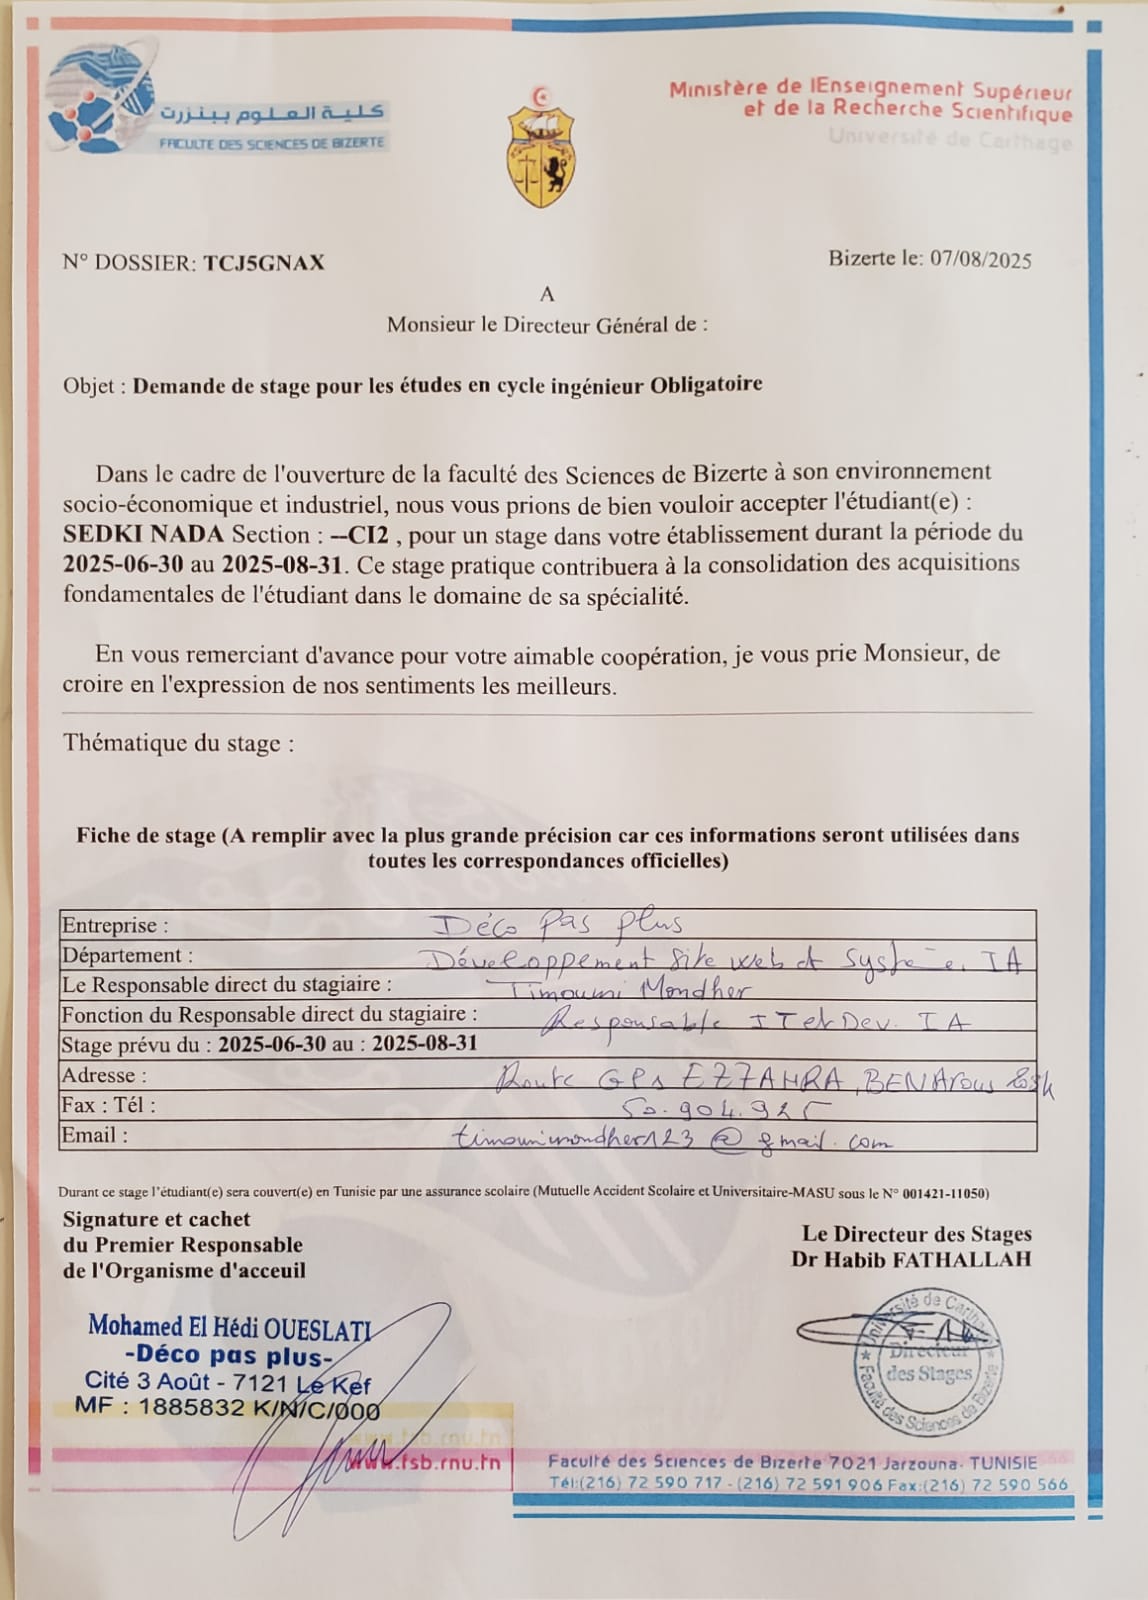 كلية العلوم ببنزرت
FACULTE DES SCIENCES DE BIZERTE
Ministère de lEnseignement Supérieur
et de la Recherche Scientifique
Université de Carthage
N° DOSSIER: TCJ5GNAX
Bizerte le: 07/08/2025
A
Monsieur le Directeur Général de :
Objet : Demande de stage pour les études en cycle ingénieur Obligatoire
Dans le cadre de l'ouverture de la faculté des Sciences de Bizerte à son environnement
socio-économique et industriel, nous vous prions de bien vouloir accepter l'étudiant(e) :
SEDKI NADA Section : --CI2 , pour un stage dans votre établissement durant la période du
2025-06-30 au 2025-08-31. Ce stage pratique contribuera à la consolidation des acquisitions
fondamentales de l'étudiant dans le domaine de sa spécialité.
En vous remerciant d'avance pour votre aimable coopération, je vous prie Monsieur, de
croire en l'expression de nos sentiments les meilleurs.
Thématique du stage :
Fiche de stage (A remplir avec la plus grande précision car ces informations seront utilisées dans
toutes les correspondances officielles)
Entreprise : Déco pas plus
Département : Développement site web et Système IA
Le Responsable direct du stagiaire : Timoumi Mondher
Fonction du Responsable direct du stagiaire : Responsable IT et Dev. IA
Stage prévu du : 2025-06-30 au : 2025-08-31
Adresse : Route GP1 EZZAHRA, BEN Arous
Fax : Tél : 50.904.925
Email : timoumimondher123@gmail.com
Durant ce stage l'étudiant(e) sera couvert(e) en Tunisie par une assurance scolaire (Mutuelle Accident Scolaire et Universitaire-MASU sous le N° 001421-11050)
Signature et cachet
du Premier Responsable
de l'Organisme d'acceuil
Le Directeur des Stages
Dr Habib FATHALLAH
Mohamed El Hédi OUESLATI
-Déco pas plus-
Cité 3 Août - 7121 Le Kef
MF : 1885832 K/N/C/000
Université de Carthage
Directeur
des Stages
Faculté des Sciences de Bizerte
www.fsb.rnu.tn
www.fsb.rnu.tn
Faculté des Sciences de Bizerte 7021 Jarzouna- TUNISIE
Tél:(216) 72 590 717 - (216) 72 591 906 Fax:(216) 72 590 566